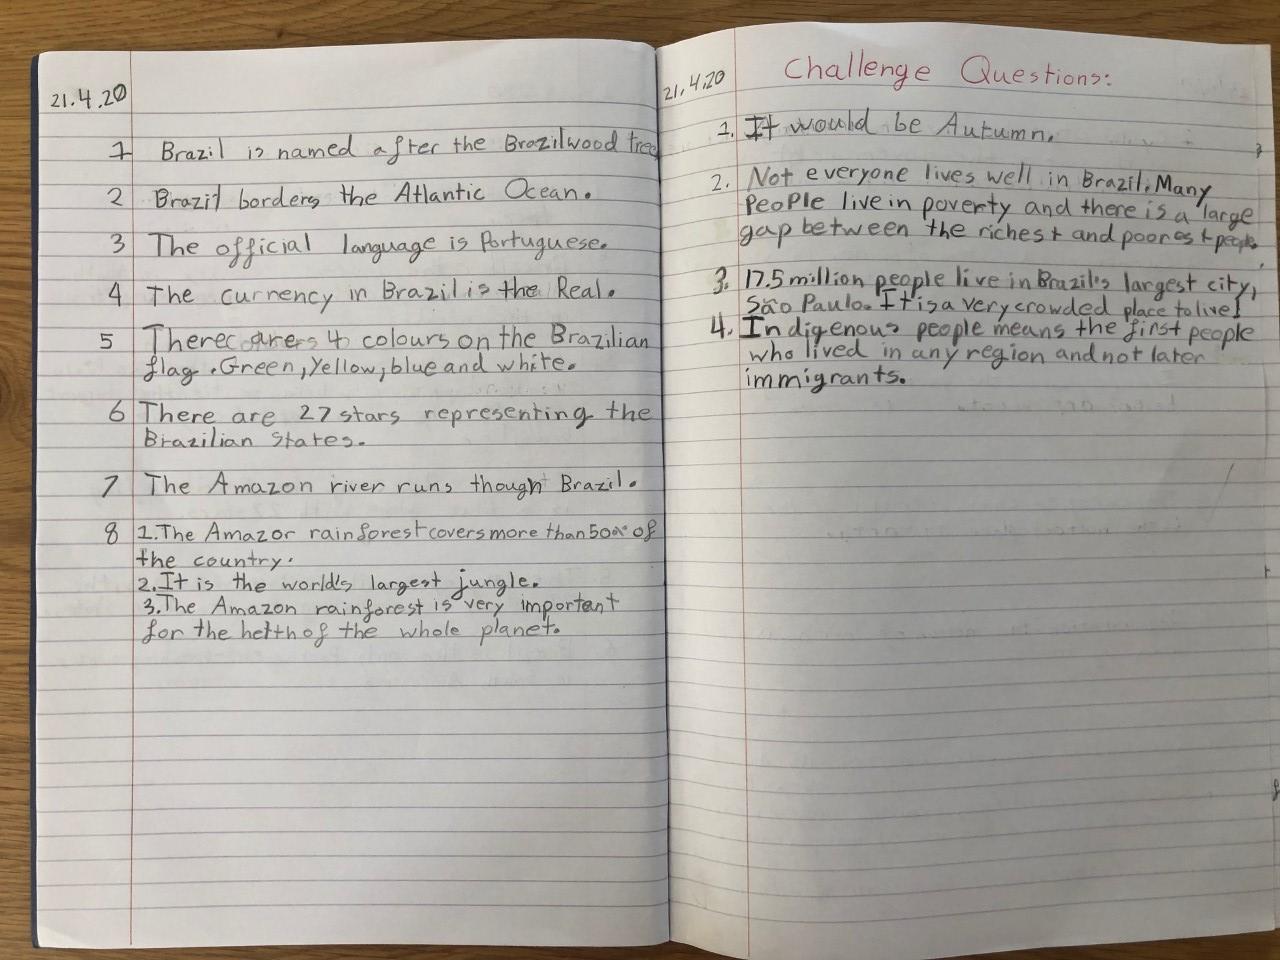 21.4.20
1 Brazil is named after the Brazilwood tree
2 Brazil borders the Atlantic Ocean.
3 The official language is Portuguese.
4 The currency in Brazil is the Real.
5 There are 4 colours on the Brazilian
flag. Green, Yellow, blue and white.
6 There are 27 stars representing the
Brazilian States.
7 The Amazon river runs though Brazil.
8 1. The Amazon rainforest covers more than of
the country.
2. It is the world's largest jungle.
3. The Amazon rainforest is very important
for the helth of the whole planet.
21.4.20
Challenge Questions:
1. It would be Autumn.
2. Not everyone lives well in Brazil. Many
People live in poverty and there is a large
gap between the richest and poorest people
3. 17.5 million people live in Brazil's largest city,
São Paulo. It is a very crowded place to live!
4. Indigenous people means the first people
who lived in any region and not later
immigrants.